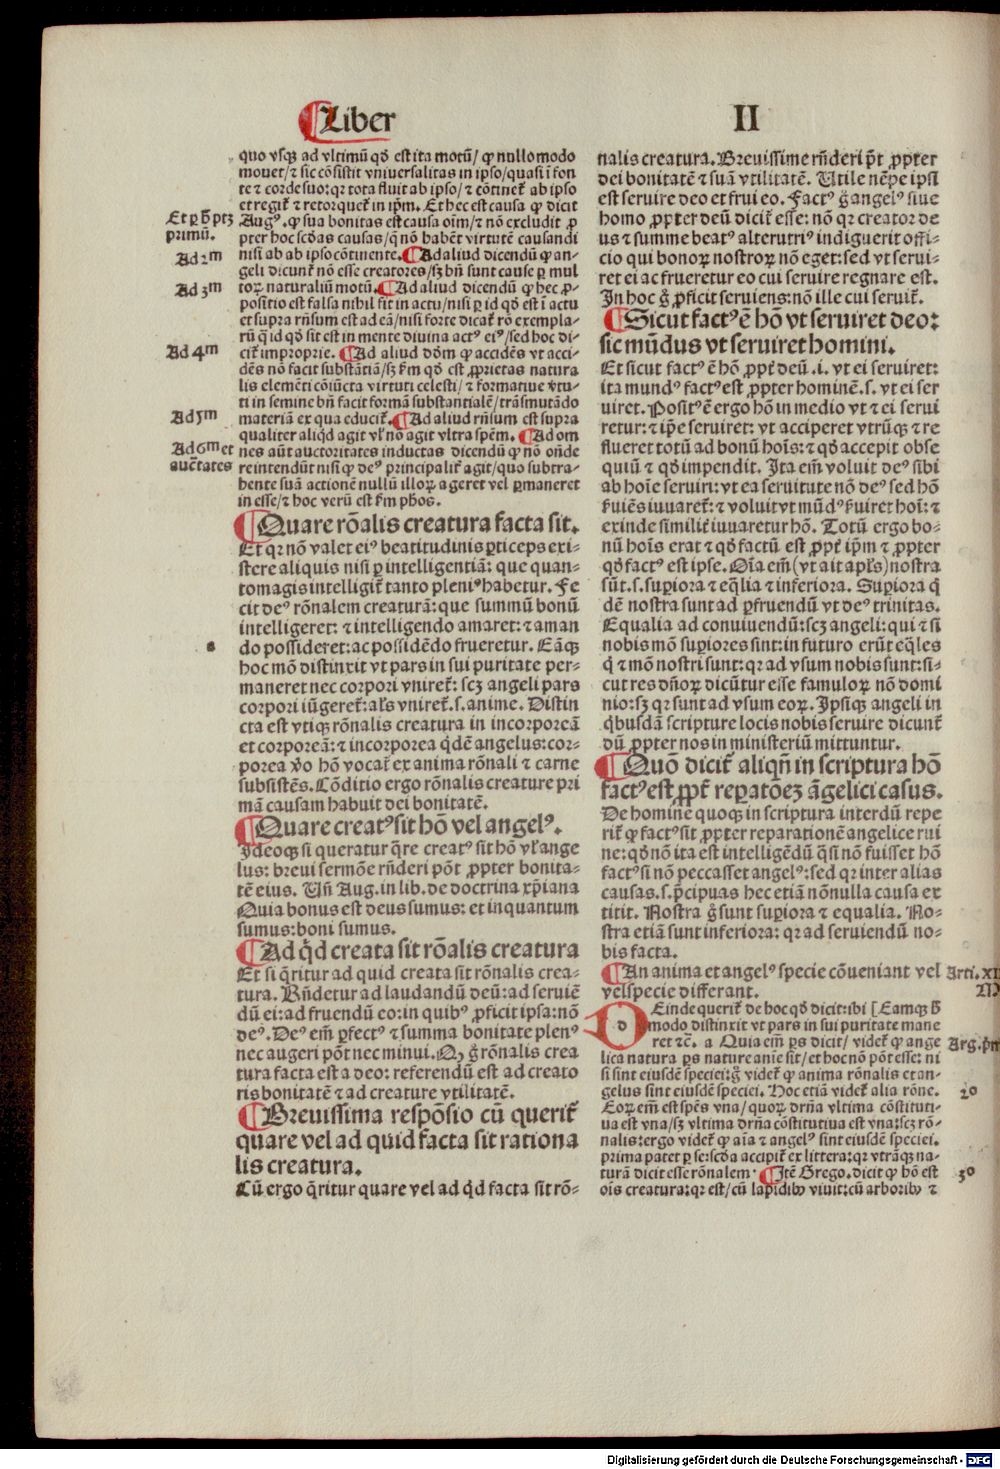 Liber
II
quo vsq̃ ad vltimũ qd̃ est ita motũ/ ꝙ nullo modo
mouet/ ⁊ sic cõsistit vniuersalitas in ipso/ quasi ĩ fon
te ⁊ corde suo: qꝛ tota fluit ab ipso/ ⁊ cõtinet̃ ab ipso
et regit̃ ⁊ retorquet̃ in ip̃m. Et hec est causa ꝙ dicit
Et ꝑ h̃ ptꝫ
primũ.
Augꝰ. ꝙ sua bonitas est causa oĩm/ ⁊ nõ excludit ꝓ
pter hoc scd̃as causas/ q̃ nõ habẽt virtutẽ causandi
nisi ab ab ipso cõtinente. ¶ Ad aliud dicendũ ꝙ an-
Ad 2m
geli dicunt̃ nõ esse creatores/ sꝫ bñ sunt cause ꝑ mul
toꝝ naturaliũ motũ. ¶ Ad aliud dicendũ ꝙ hec ꝓ-
Ad 3m
positio est falsa nihil fit in actu/ nisi ꝑ id qd̃ est ĩ actu
et supra rñsum est ad eã/ nisi forte dicat̃ rõ exempla-
rũ q̃ id qd̃ sit est in mente diuina actꝰ eiꝰ/ sed hoc di-
cit̃ improprie. ¶ Ad aliud dõm ꝙ accidẽs vt acci-
Ad 4m
dẽs nõ facit substãtiã/ sꝫ fm̃ qd̃ est ꝓprietas natura
lis elemẽti cõiũcta virtuti celesti/ ⁊ formatiue ṽtu-
ti in semine bñ facit formã substantialẽ/ trãsmutãdo
materiã ex qua educit̃. ¶ Ad aliud rñsum est supra
Ad 5m
qualiter aliqd̃ agit vl̃ nõ agit vltra spẽm. ¶ Ad om
nes aũt auctoritates inductas dicendũ ꝙ nõ oñde
Ad 6m et
auc̃tates
re intendũt nisi ꝙ deꝰ principalit̃ agit/ quo subtra-
hente suã actionẽ nullũ illoꝝ ageret vel ꝑmaneret
in esse/ ⁊ hoc verũ est fm̃ ph̃os.
¶ Quare rõnalis creatura facta sit.
Et qꝛ nõ valet eiꝰ beatitudinis ꝑticeps exi-
stere aliquis nisi ꝑ intelligentiã: que quan-
tomagis intelligit̃ tanto pleniꝰ habetur. Fe
cit deꝰ rõnalem creaturã: que summũ bonũ
intelligeret: ⁊ intelligendo amaret: ⁊ aman
do possideret: ac possidẽdo frueretur. Eãq̃
hoc mõ distinxit vt pars in sui puritate per-
maneret nec corpori vniret̃: scꝫ angeli pars
corpori iũgeret̃: al̃s vniret̃. s. anime. Distin
cta est vtiq̃ rõnalis creatura in incorporeã
et corporeã: ⁊ incorporea qd̃ẽ angelus: cor-
porea ṽo hõ vocat̃ ex anima rõnali ⁊ carne
subsistẽs. Cõditio ergo rõnalis creature pri
mã causam habuit dei bonitatẽ.
¶ Quare creatꝰ sit hõ vel angelꝰ.
Ideoq̃ si queratur q̃re creatꝰ sit hõ vl̃ ange
lus: breui sermõe rñderi põt ꝓpter bonita-
tẽ eius. Vñ Aug. in lib. de doctrina xp̃iana
Quia bonus est deus sumus: et inquantum
sumus: boni sumus.
¶ Ad qd̃ creata sit rõnalis creatura
Et si q̃ritur ad quid creata sit rõnalis crea-
tura. Rñdetur ad laudandũ deũ: ad seruiẽ
dũ ei: ad fruendũ eo: in quibꝰ ꝓficit ipsa: nõ
deꝰ. Deꝰ em̃ ꝑfectꝰ ⁊ summa bonitate plenꝰ
nec augeri põt nec minui. Qꝫ g̃ rõnalis crea
tura facta est a deo: referendũ est ad creato
ris bonitatẽ ⁊ ad creature vtilitatẽ.
¶ Breuissima respõsio cũ querit̃
quare vel ad quid facta sit rationa
lis creatura.
Cũ ergo q̃ritur quare vel ad qd̃ facta sit rõ-
nalis creatura. Breuissime rñderi põt ꝓpter
dei bonitatẽ ⁊ suã vtilitatẽ. Utile nẽpe ipsi
est seruire deo et frui eo. Factꝰ g̃ angelꝰ siue
homo ꝓpter deũ dicit̃ esse: nõ qꝛ creator de
us ⁊ summe beatꝰ alterutriꝰ indiguerit offi-
cio qui bonoꝝ nostroꝝ nõ eget: sed vt serui-
ret ei ac frueretur eo cui seruire regnare est.
In hoc g̃ ꝓficit seruiens: nõ ille cui seruit̃.
¶ Sicut factꝰ ẽ hõ vt seruiret deo:
sic mũdus vt seruiret homini.
Et sicut factꝰ ẽ hõ ꝓpt̃ deũ .i. vt ei seruiret:
ita mundꝰ factꝰ est ꝓpter hominẽ. s. vt ei ser
uiret. Positꝰ ẽ ergo hõ in medio vt ⁊ ei serui
retur: ⁊ ip̃e seruiret: vt acciperet vtrũq̃ ⁊ re
flueret totũ ad bonũ hoĩs: ⁊ qd̃ accepit obse
quiũ ⁊ qd̃ impendit. Ita em̃ voluit deꝰ sibi
ab hoĩe seruiri: vt ea seruitute nõ deꝰ sed hõ
ẜuiẽs iuuaret̃: ⁊ voluit vt mũdꝰ ẜuiret hoĩ: ⁊
exinde similit̃ iuuaretur hõ. Totũ ergo bo-
nũ hoĩs erat ⁊ qd̃ factũ est ꝓpt̃ ip̃m ⁊ ꝓpter
qd̃ factꝰ est ipse. Oĩa em̃ (vt ait apl̃s) nostra
sũt. s. suꝑiora ⁊ eq̃lia ⁊ inferiora. Suꝑiora q̃
dẽ nostra sunt ad ꝑfruendũ vt deꝰ trinitas.
Equalia ad conuiuendũ: scꝫ angeli: qui ⁊ si
nobis mõ suꝑiores sint: in futuro erũt eq̃les
q̃ ⁊ mõ nostri sunt: qꝛ ad vsum nobis sunt: si-
cut res dñoꝝ dicũtur esse famuloꝝ nõ domi
nio: sꝫ qꝛ sunt ad vsum eoꝝ. Ipsiq̃ angeli in
q̃busdã scripture locis nobis seruire dicunt̃
dũ ꝓpter nos in ministeriũ mittuntur.
¶ Quõ dicit̃ aliqñ in scriptura hõ
factꝰ est ꝓpt̃ reꝑatõeꝫ ãgelici casus.
De homine quoq̃ in scriptura interdũ repe
rit̃ ꝙ factꝰ sit ꝓpter reparationẽ angelice rui
ne: qd̃ nõ ita est intelligẽdũ q̃si nõ fuisset hõ
factꝰ si nõ peccasset angelꝰ: sed qꝛ inter alias
causas. s. p̃cipuas hec etiã nõnulla causa ex
titit. Nostra g̃ sunt suꝑiora ⁊ equalia. No-
stra etiã sunt inferiora: qꝛ ad seruiendũ no-
bis facta.
¶ An anima et angelꝰ specie cõueniant vel
Arti. XII
vel specie differant.
DEinde querit̃ de hoc qd̃ dicit: ibi [Eamq̃ h̃
modo distinxit vt pars in sui puritate mane
ret ⁊c̃. a Quia em̃ ꝑs dicit/ videt̃ ꝙ ange
Arg. pm
lica natura ꝑs nature anie sit/ et hoc nõ põt esse: ni
si sint eiusdẽ speciei: g̃ videt̃ ꝙ anima rõnalis et an-
gelus sint eiusdẽ speciei. Hoc etiã videt̃ alia rõne.
2o
Eoꝝ em̃ est spẽs vna/ quoꝝ drñã vltima cõstituti-
ua est vna/ sꝫ vltima drñã cõstitutiua est vna: scꝫ rõ-
nalis: ergo videt̃ ꝙ aĩa ⁊ angelꝰ sint eiusdẽ speciei.
prima patet ꝑ se: scd̃a accipit̃ ex littera: qꝛ vtrãq̃ na-
turã dicit esse rõnalem. ¶ Itẽ Grego. dicit ꝙ hõ est
3o
oĩs creatura: qꝛ est/ cũ lapidibꝰ viuit: cũ arboribꝰ ⁊
Digitalisierung gefördert durch die Deutsche Forschungsgemeinschaft - DFG